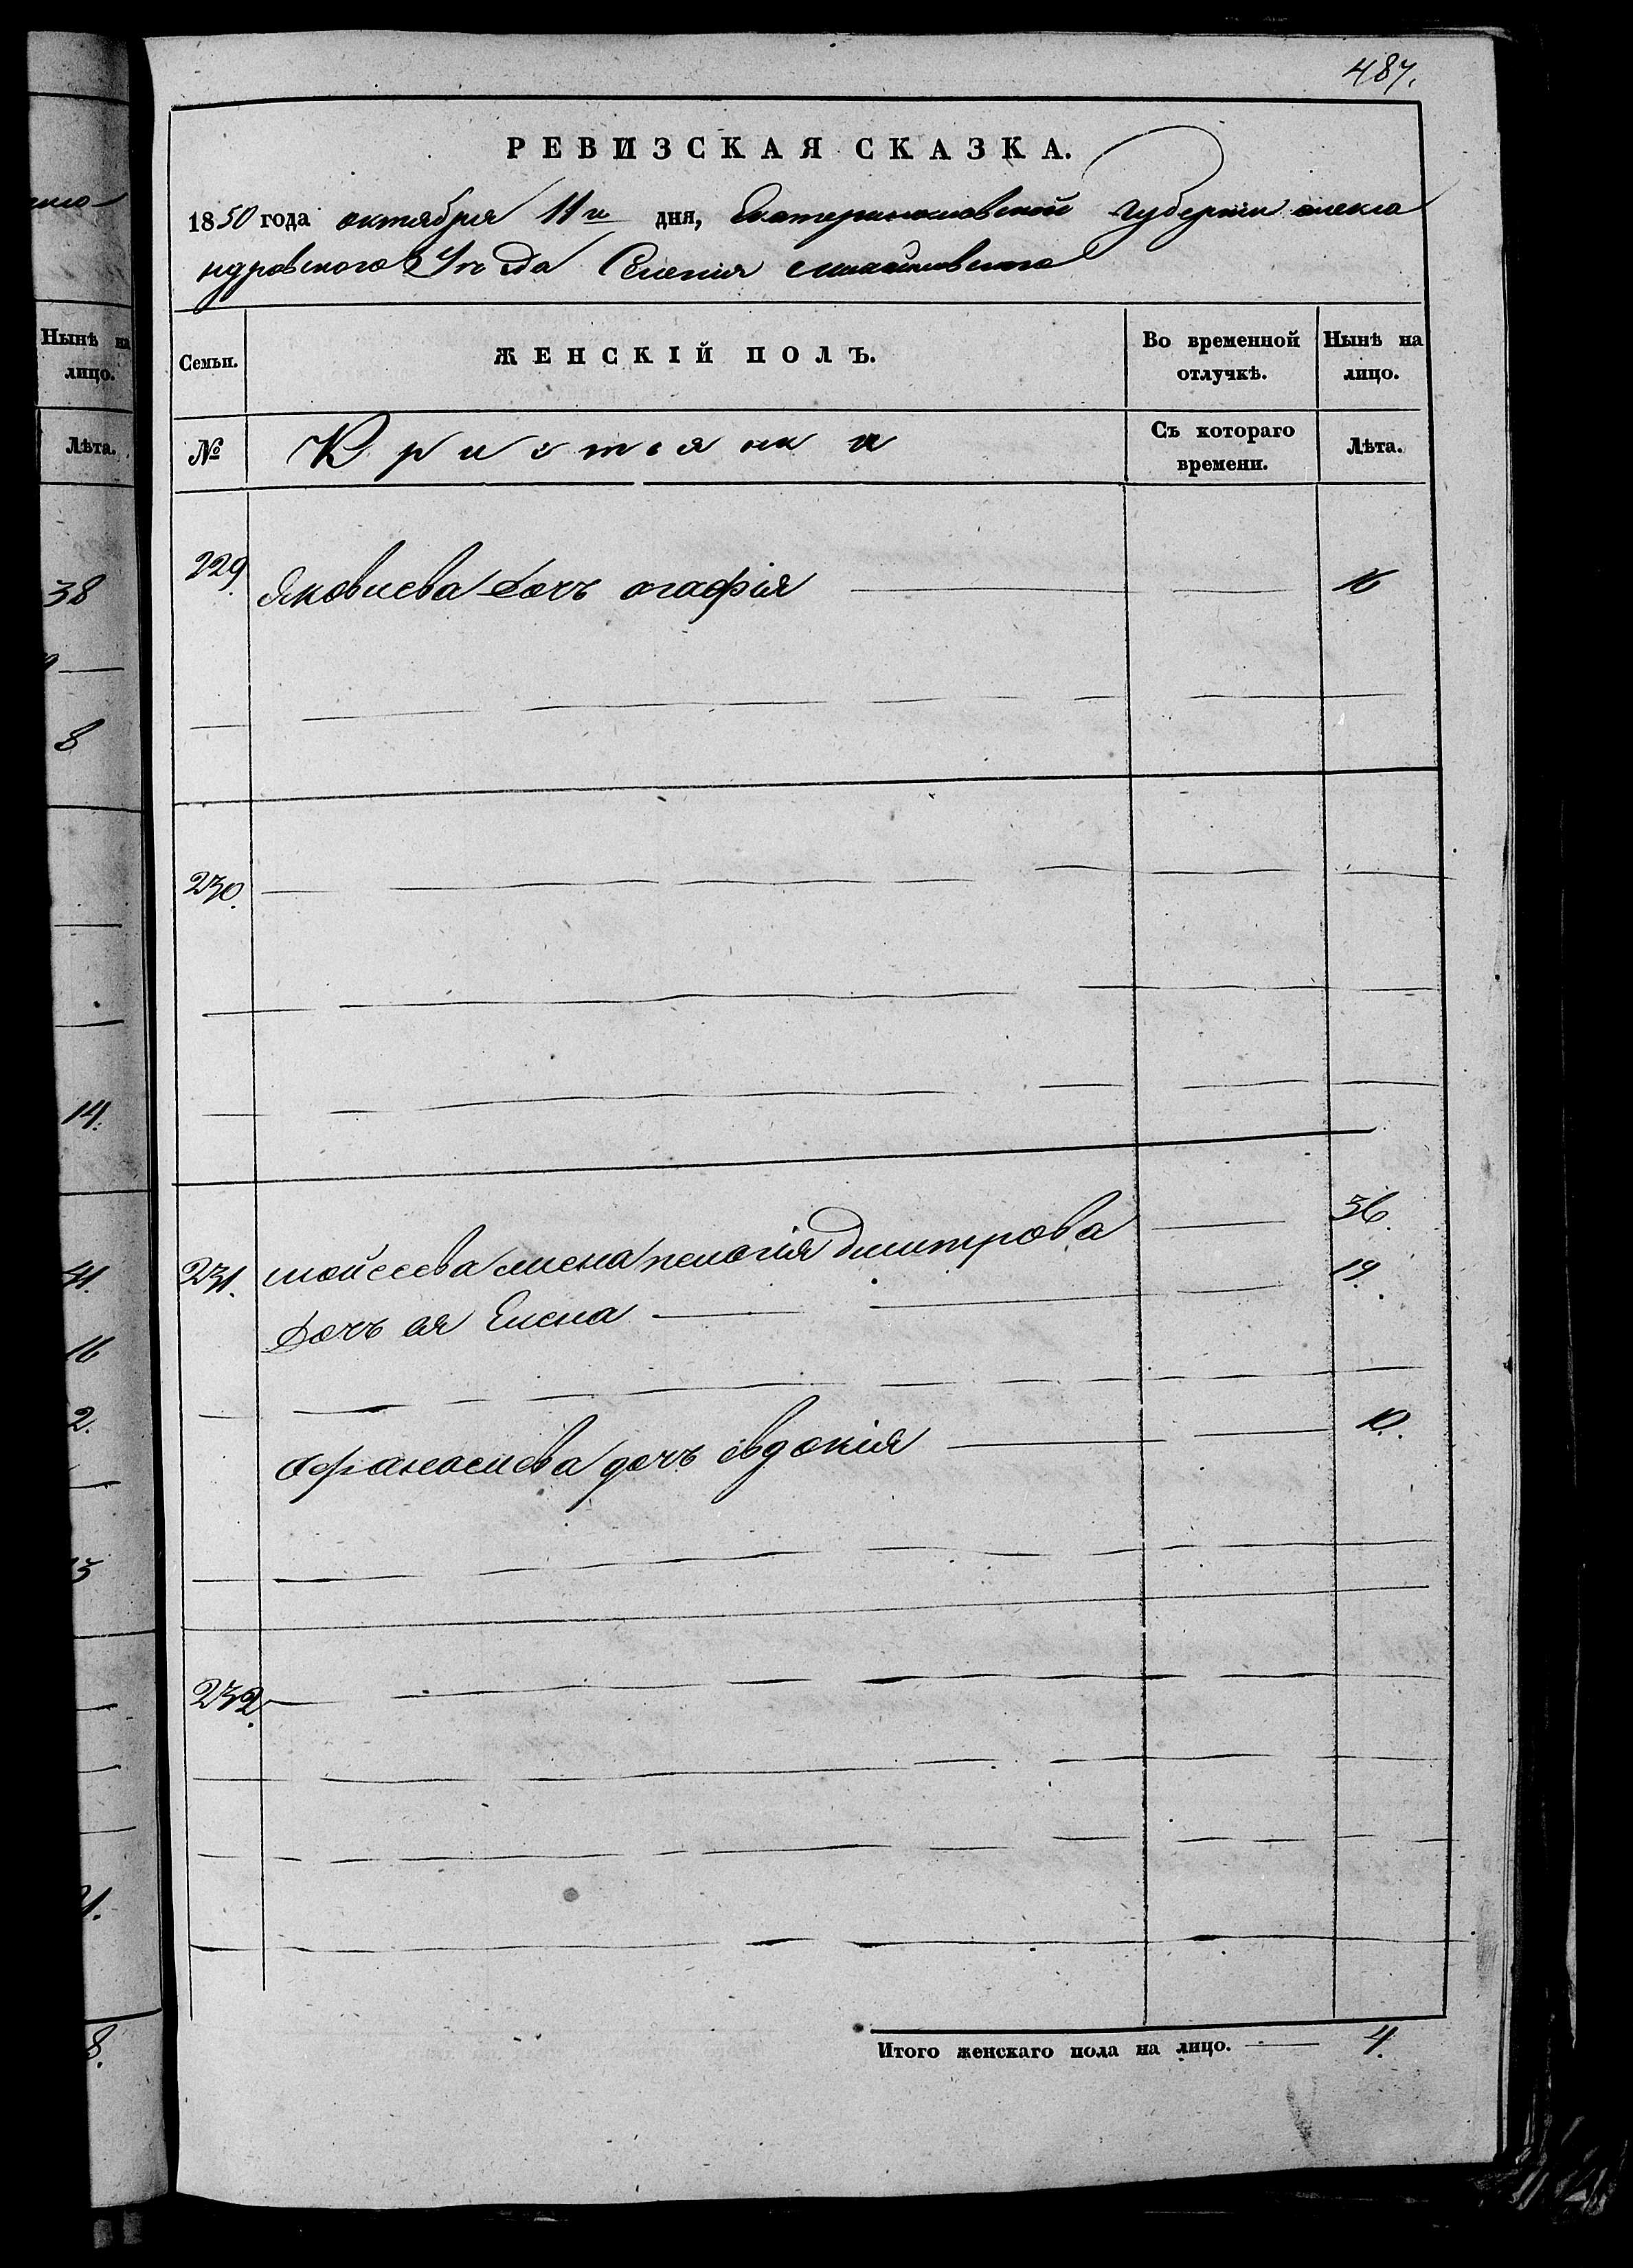 487.
РЕВИЗСКАЯ СКАЗКА.
1850 года октября 11го дня, Екатеринославской Губернии алекса
ндровского Уезда Селения михайловского
Нынѣ на лицо.
Семьи.
ЖЕНСКІЙ ПОЛЪ.
Во временной отлучкѣ.
Нынѣ на лицо.
Лѣта.
№
Кристьянки
Съ котораго времени.
Лѣта.
38
229. Яковлева дочь агафія 16
8
230.
14.
231. мойсеева жена пелагія дмитрова 36.
41.
дочь ея Елена 19.
16
2.
афанасиева дочь евдокія 10.
13
232.
8.
Итого женскаго пола на лицо. 4.